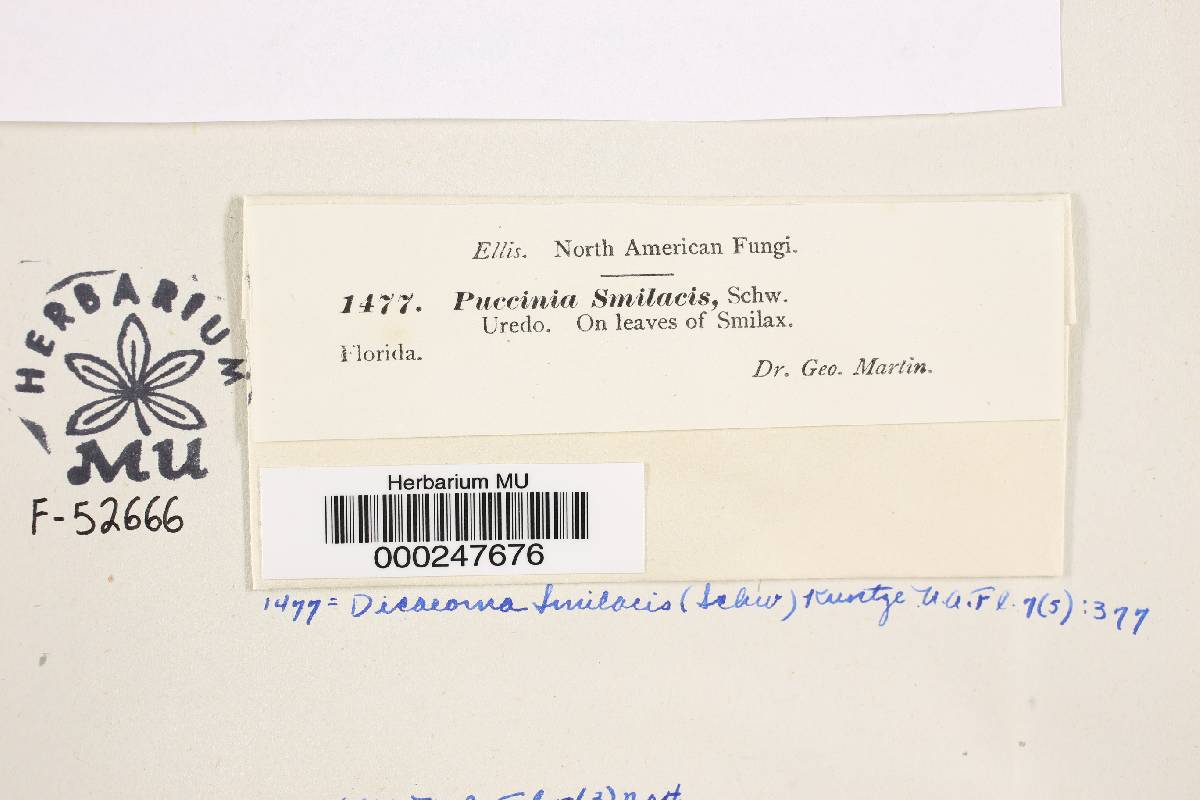 Ellis. North American Fungi.
1477. Puccinia Smilacis, Schw.
Uredo. On leaves of Smilax.
Florida.
Dr. Geo. Martin.
HERBARIUM
MU
F-52666
Herbarium MU
000247676
1477 = Dicaeoma Smilacis (Schw) Kuntze N.A.Fl. 7(5):377